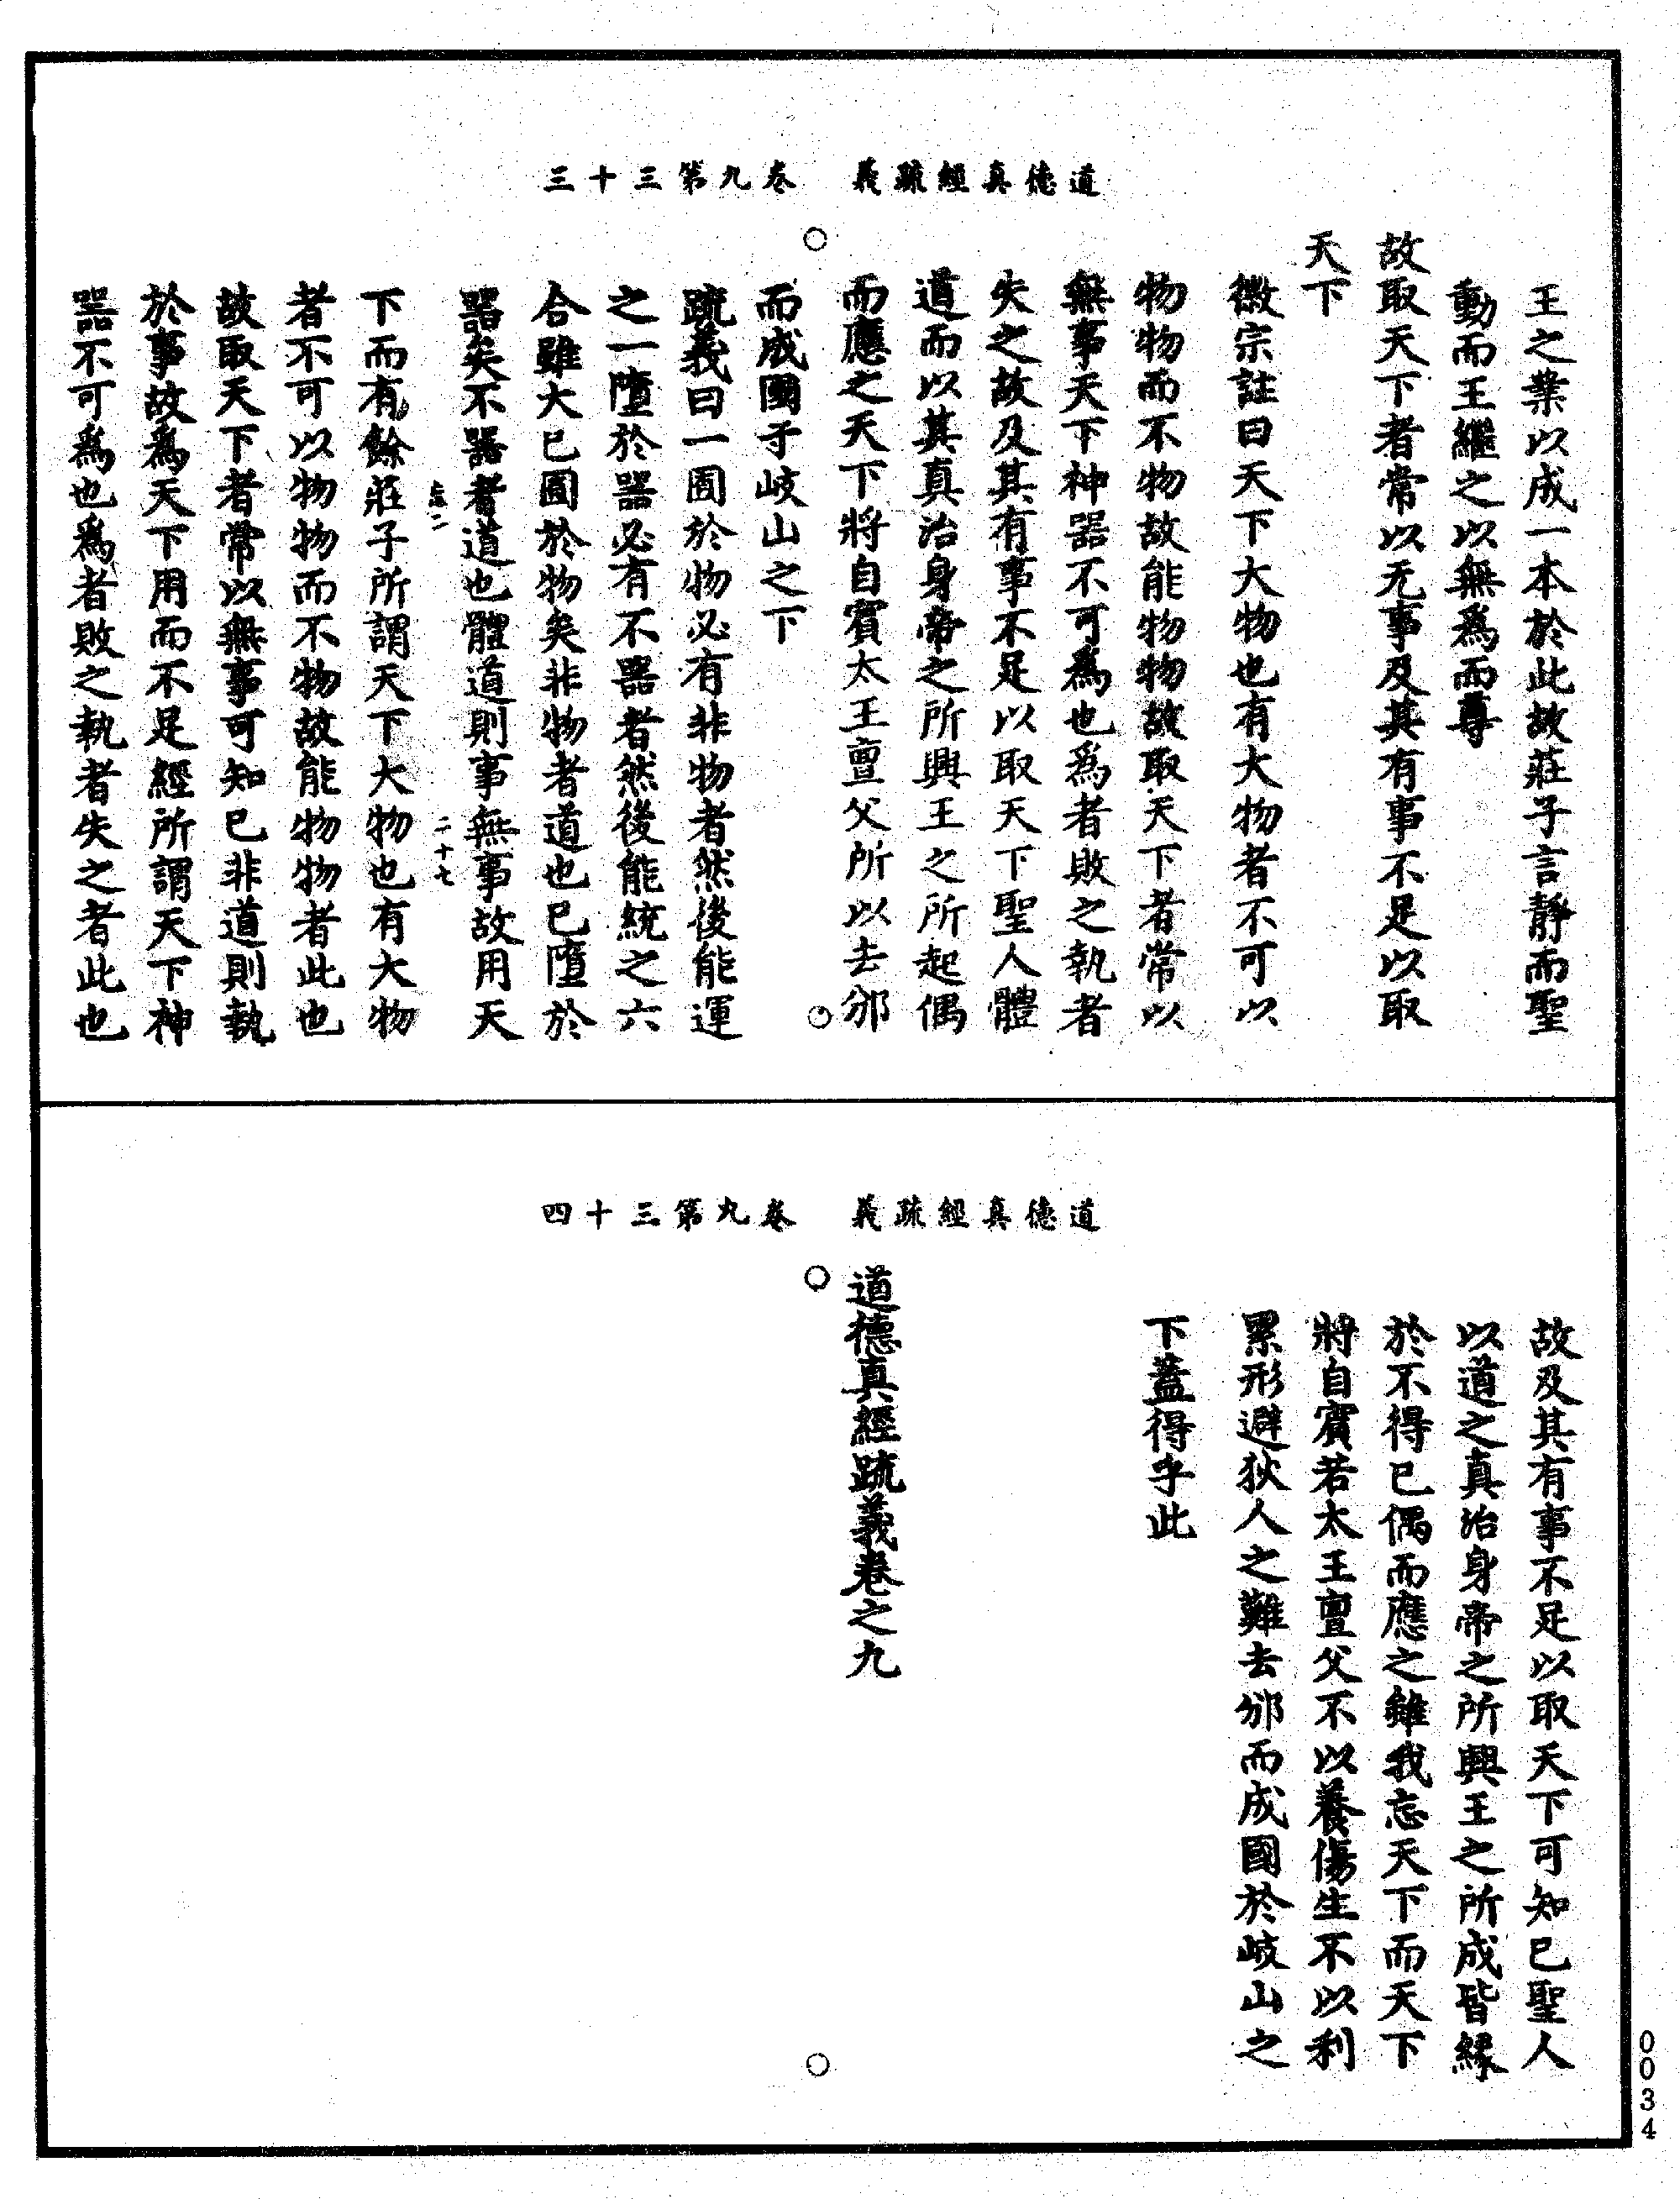 道德真經疏義　卷九第三十三
王之業以成一本於此故莊子言靜而聖
動而王繼之以無爲而尊
故取天下者常以无事及其有事不足以取
天下
徽宗註曰天下大物也有大物者不可以
物物而不物故能物物故取天下者常以
無事天下神器不可爲也爲者敗之執者
失之故及其有事不足以取天下聖人體
道而以其真治身帝之所興王之所起偶
而應之天下將自賓太王亶父所以去邠
而成國于岐山之下
疏義曰一囿於物必有非物者然後能運
之一墮於器必有不器者然後能統之六
合雖大已囿於物矣非物者道也已墮於
器矣不器者道也體道則事無事故用天
下而有餘莊子所謂天下大物也有大物
二十七
者不可以物物而不物故能物物者此也
故取天下者常以無事可知已非道則執
於事故爲天下用而不足經所謂天下神
器不可爲也爲者敗之執者失之者此也
道德真經疏義　卷九第三十四
故及其有事不足以取天下可知已聖人
以道之真治身帝之所興王之所成皆緣
於不得已偶而應之雖我忘天下而天下
將自賓若太王亶父不以養傷生不以利
累形避狄人之難去邠而成國於岐山之
下蓋得乎此
道德真經疏義卷之九
0034